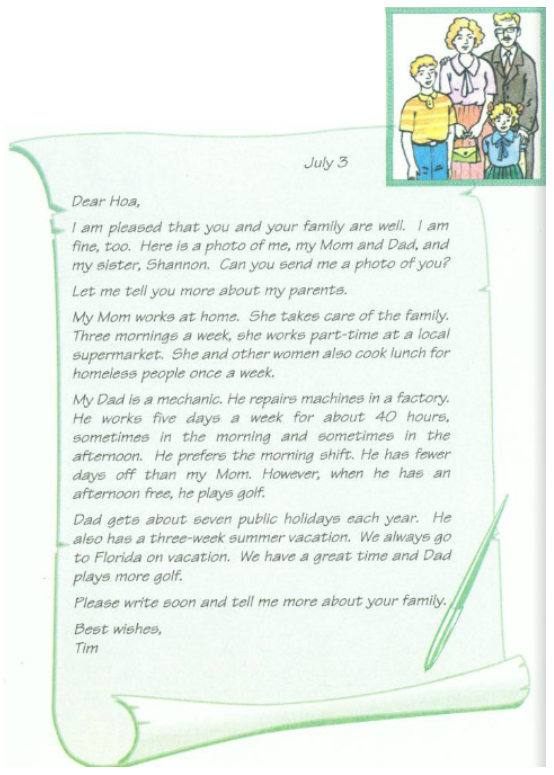 July 3
Dear Hoa,
I am pleased that you and your family are well. I am
fine, too. Here is a photo of me, my Mom and Dad, and
my sister, Shannon. Can you send me a photo of you?
Let me tell you more about my parents.
My Mom works at home. She takes care of the family.
Three mornings a week, she works part-time at a local
supermarket. She and other women also cook lunch for
homeless people once a week.
My Dad is a mechanic. He repairs machines in a factory.
He works five days a week for about 40 hours,
sometimes in the morning and sometimes in the
afternoon. He prefers the morning shift. He has fewer
days off than my Mom. However, when he has an
afternoon free, he plays golf.
Dad gets about seven public holidays each year. He
also has a three-week summer vacation. We always go
to Florida on vacation. We have a great time and Dad
plays more golf.
Please write soon and tell me more about your family.
Best wishes,
Tim